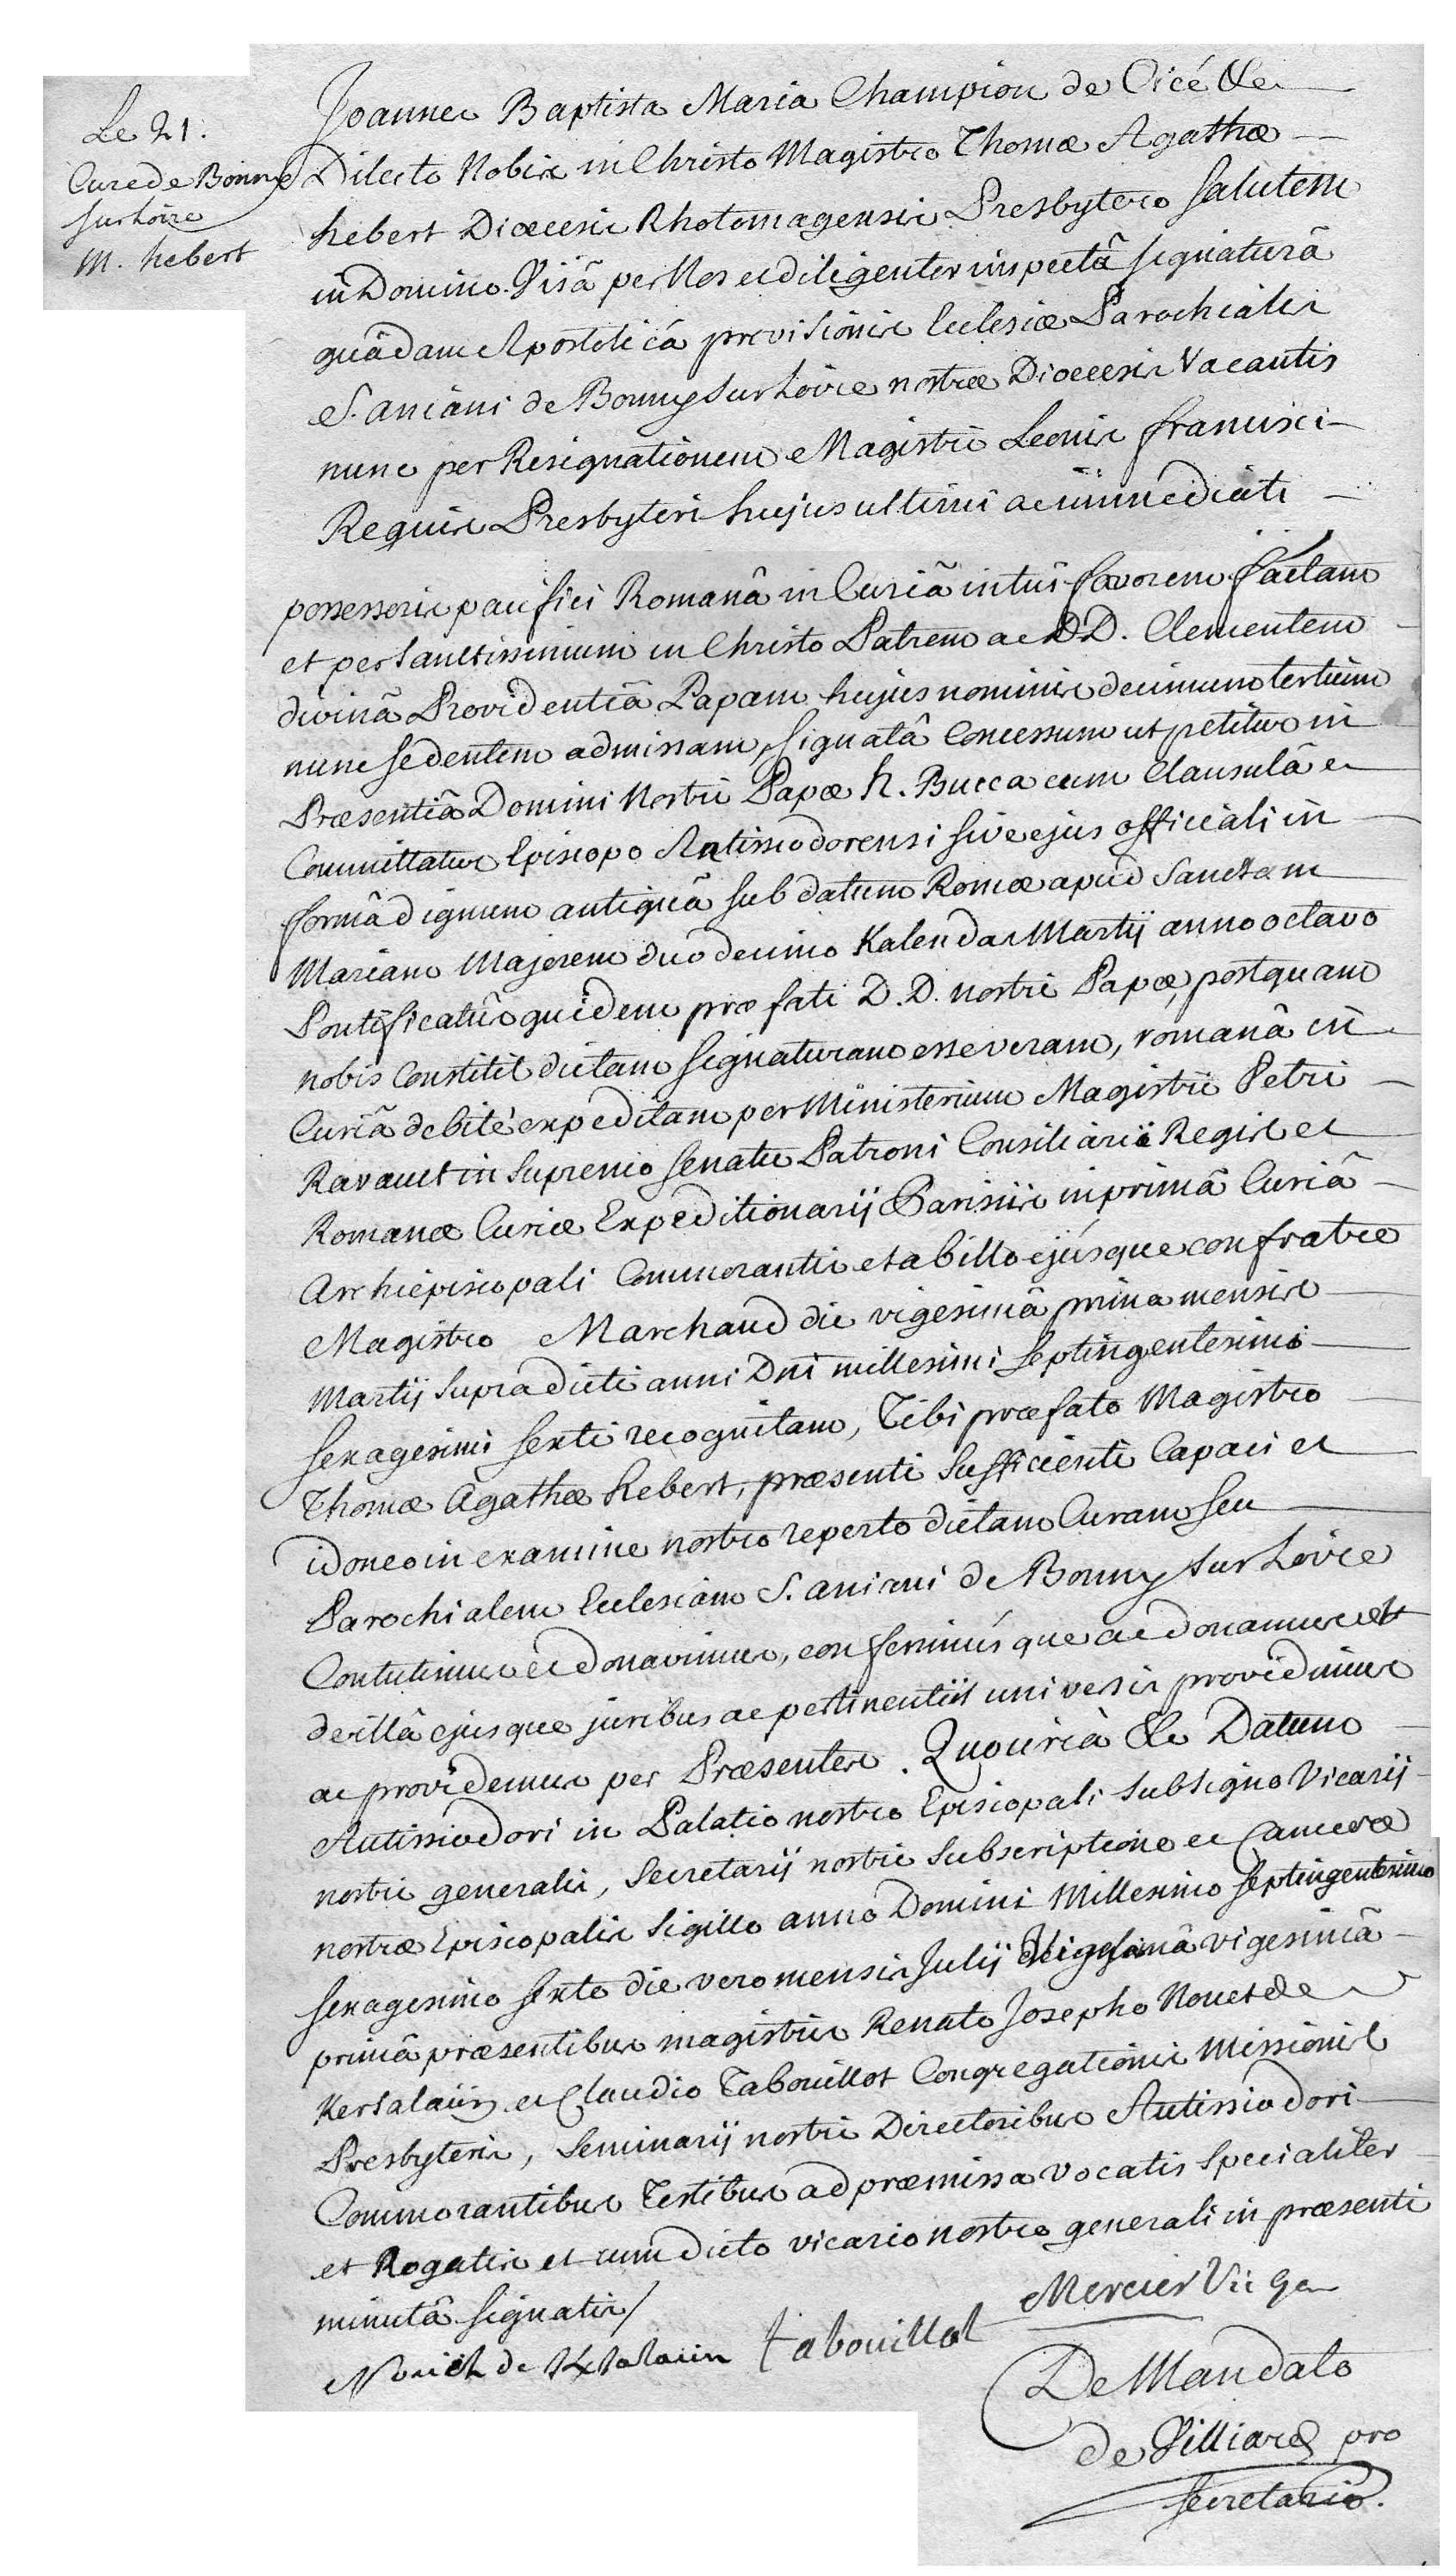 Le 21.
Cure de Bonny
sur Loire
M. hebert
Joannes Baptista Maria Champion de Cicé &c
Dilecto Nobis in Christo Magistro Thomæ Agathæ
hebert Diœcesis Rhotomagensis Presbytero Salutem
in Domino. Visâ per Nos ac diligenter inspectâ signaturâ
quâdam Apostolicâ provisionis Ecclesiæ Parochialis
S. aniani de Bonny Sur Loire nostræ Diœcesis Vacantis
nunc per Resignationem Magistri Leonis francisci
Requin Presbyteri hujus ultimi ac immediati
possessoris pacifici Romanâ in Curiâ in tui favorem factam
et per Sanctissimum in Christo Patrem ac D.D. Clementem
divinâ Providentiâ Papam hujus nominis decimum tertium
nunc sedentem admissam, signatâ Concessum ut petitur in
Præsentiâ Domini Nostri Papæ h. Bucca cum Clausulâ et
Committatur Episcopo Autissiodorensi sive ejus officiali in
formâ dignum antiquâ sub datum Romæ apud Sanctam
Mariam Majorem duodecimo Kalendas Martij anno octavo
Pontificatûs quidem præfati D.D. nostri Papæ, postquam
nobis Constitit dictam signaturam esse veram, romanâ in
Curiâ debitè expeditam per Ministerium Magistri Petri
Ravault in Supremo Senatu Patroni Consiliarii Regis et
Romanæ Curiæ Expeditionarij Parisiis in primâ Curiâ
Archiepiscopali Commorantis et ab illo ejúsque confratre
Magistro Marchand die vigesimâ prima mensis
Martij Supradicti anni Dni millesimi Septingentesimi
sexagesimi sexti recognitam, Tibi præfato Magistro
Thomæ Agathæ hebert, præsenti Sufficienti Capaci et
idoneo in examine nostro reperto dictam Curam seu
Parochialem Ecclesiam S. aniani de Bonny sur Loire
Contulimus et donavimus, conferimúsque ac donamus et
de illâ ejusque juribus ac pertinentiis universis providimus
ac providemus per Præsentes. Quocircà &c Datum
Autissiodori in Palatio nostro Episcopali sub signo Vicarij
nostri generalis, Secretarij nostri Subscriptione et Cameræ
nostræ Episcopalis Sigillo anno Domini Millesimo Septingentesimo
sexagesimo sexto die vero mensis Julij vigesimâ
primâ præsentibus magistris Renato Josepho Nouet de
Kersalaün et Claudio Tabouillot Congregationis Missionis
Presbyteris, Seminarij nostri Directoribus Autissiodori
Commorantibus Testibus ad præmissa vocatis Specialiter
et Rogatis et cum dicto vicario nostro generali in præsenti
minutâ signatis/
Mercier Vic gen
de Tabouillot
De Mandato
de Villiard pro
secretario.